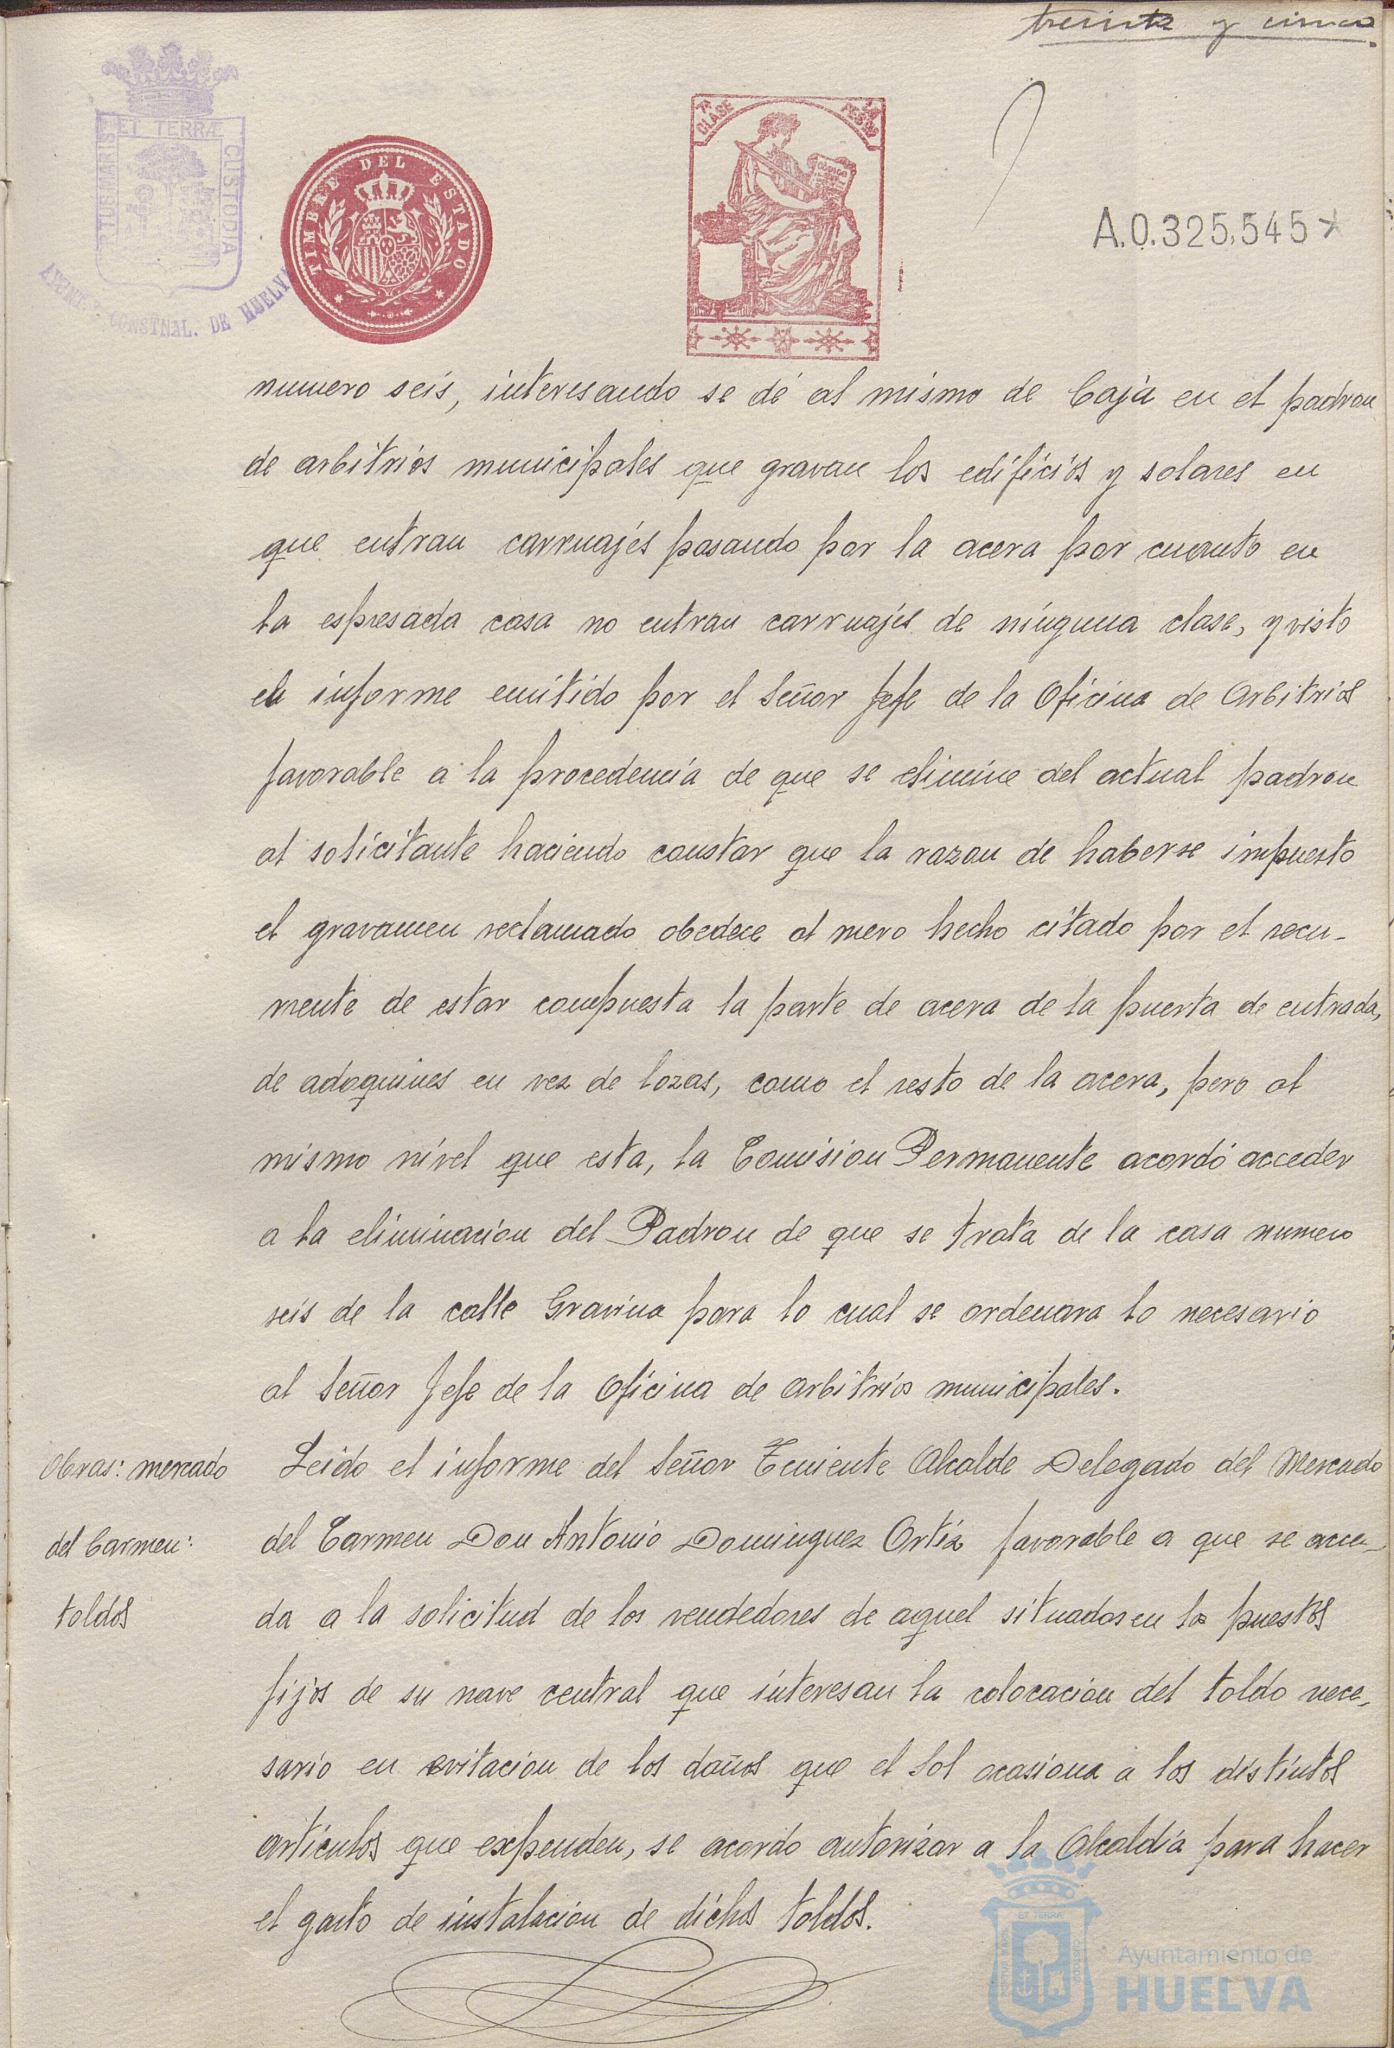 treinta y cinco.
ET TERRÆ
CUSTODIA
CONSTNAL. DE HUELVA
TIMBRE DEL ESTADO
7ª CLASE
A.0.325,545*
numero seis, interesando se dé al mismo de baja en el padron
de arbitrios municipales que gravan los edificios y solares en
que entran carruajes pasando por la acera por cuanto en
la espresada casa no entran carruajes de ninguna clase, y visto
el informe emitido por el Señor Jefe de la Oficina de Arbitrios
favorable a la procedencia de que se elimine del actual padron
al solicitante haciendo constar que la razon de haberse impuesto
el gravamen reclamado obedece al mero hecho citado por el recu-
rrente de estar compuesta la parte de acera de la puerta de entrada,
de adoquines en vez de lozas, como el resto de la acera, pero al
mismo nivel que esta, la Comision Permanente acordó acceder
a la eliminacion del Padron de que se trata de la casa numero
seis de la calle Gravina para lo cual se ordenara lo necesario
al Señor Jefe de la Oficina de arbitrios municipales.
Obras: mercado
del Carmen:
toldos
Leido el informe del Señor Teniente Alcalde Delegado del Mercado
del Carmen Don Antonio Dominguez Ortiz favorable a que se acce-
da a la solicitud de los vendedores de aquel situados en los puestos
fijos de su nave central que interesan la colocacion del toldo nece-
sario en evitacion de los daños que el Sol ocasiona a los distintos
articulos que expenden, se acordó autorizar a la Alcaldía para hacer
el gasto de instalacion de dichos toldos.
Ayuntamiento de
HUELVA